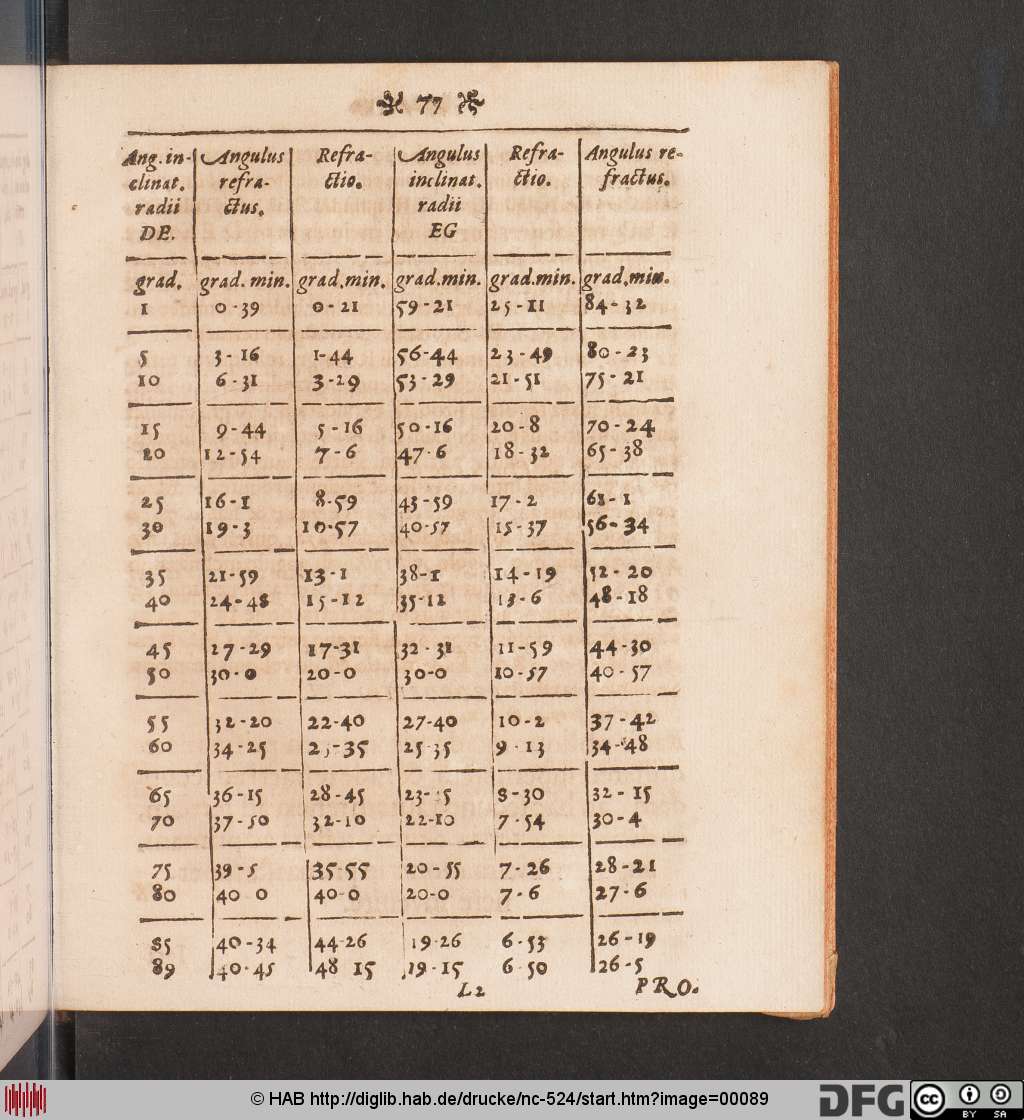 77
Ang. in- Angulus Refra- Angulus Refra- Angulus re-
clinat. refra- ctio. inclinat. ctio. fractus.
radii ctus. radii
DE. EG
grad. grad. min. grad. min. grad. min. grad. min. grad. min.
1 0-39 0-21 59-21 25-11 84-32
5 3-16 1-44 56-44 23-49 80-23
10 6-31 3-29 53-29 21-51 75-21
15 9-44 5-16 50-16 20-8 70-24
20 12-54 7-6 47-6 18-32 65-38
25 16-1 8-59 43-59 17-2 61-1
30 19-3 10-57 40-57 15-37 56-34
35 21-59 13-1 38-1 14-19 52-20
40 24-48 15-12 35-12 13-6 48-18
45 27-29 17-31 32-31 11-59 44-30
50 30-0 20-0 30-0 10-57 40-57
55 32-20 22-40 27-40 10-2 37-42
60 34-25 25-35 25-35 9-13 34-48
65 36-15 28-45 8-30 32-15
70 37-50 32-10 22-10 7-54 30-4
75 39-5 35-55 20-55 7-26 28-21
80 40 0 40-0 20-0 7-6 27-6
85 40-34 44-26 19-26 6-53 26-19
89 40-45 48 15 19-15 6-50 26-5
L2 PRO.
© HAB http://diglib.hab.de/drucke/nc-524/start.htm?image=00089
DFG cc BY SA